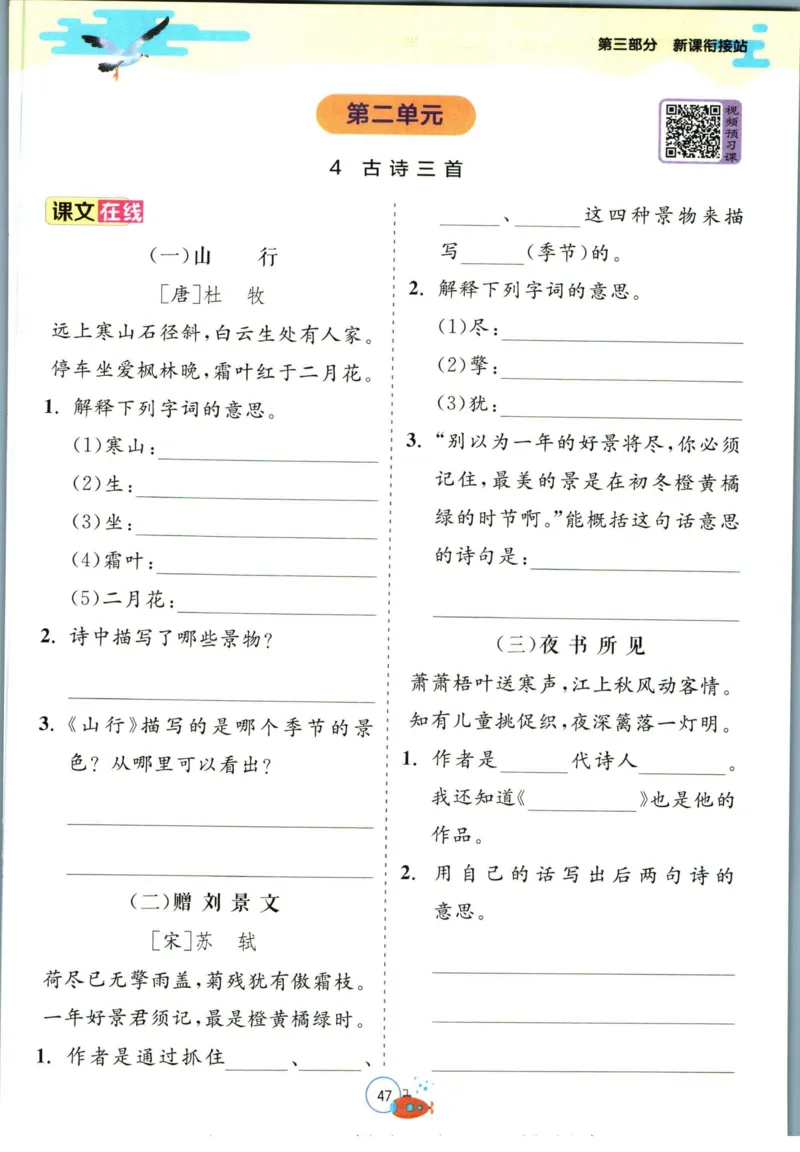 第三部分 新课衔接站
第二单元
视频预习课
4 古诗三首
课文在线
(一)山 行
[唐]杜 牧
远上寒山石径斜,白云生处有人家。
停车坐爱枫林晚,霜叶红于二月花。
1. 解释下列字词的意思。
(1)寒山:
(2)生:
(3)坐:
(4)霜叶:
(5)二月花:
2. 诗中描写了哪些景物?
3.《山行》描写的是哪个季节的景
色?从哪里可以看出?
(二)赠刘景文
[宋]苏 轼
荷尽已无擎雨盖,菊残犹有傲霜枝。
一年好景君须记,最是橙黄橘绿时。
1. 作者是通过抓住______、______、
______、______这四种景物来描
写______(季节)的。
2. 解释下列字词的意思。
(1)尽:
(2)擎:
(3)犹:
3. “别以为一年的好景将尽,你必须
记住,最美的景是在初冬橙黄橘
绿的时节啊。”能概括这句话意思
的诗句是:
(三)夜书所见
萧萧梧叶送寒声,江上秋风动客情。
知有儿童挑促织,夜深篱落一灯明。
1. 作者是______代诗人________。
我还知道《__________》也是他的
作品。
2. 用自己的话写出后两句诗的
意思。
47